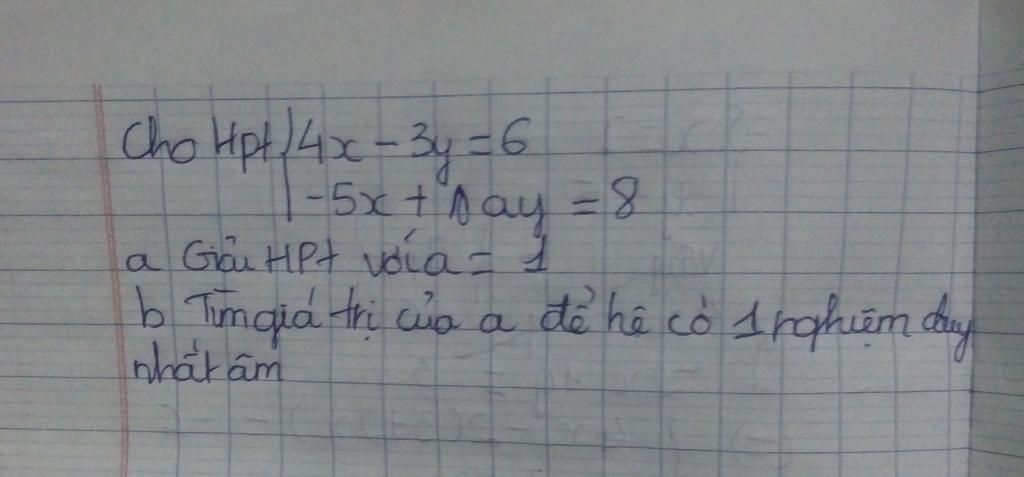 Cho Hpt 4x - 3y = 6
-5x + ay = 8
a Giải HPt với a = 1
b Tìm giá trị của a để hê có 1 nghiệm duy
nhất âm